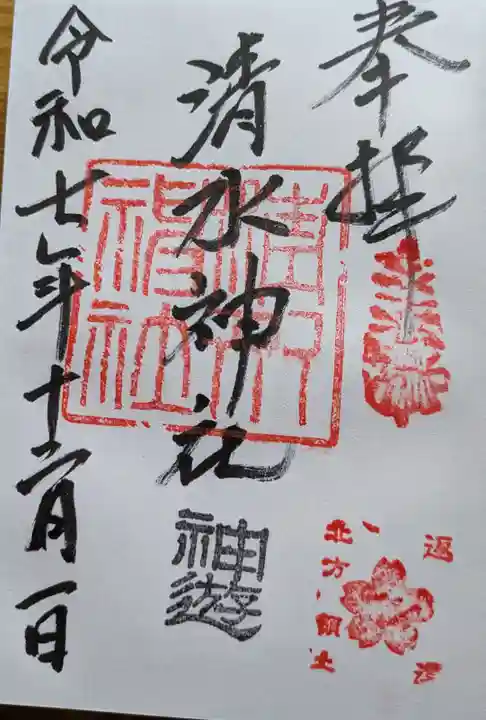 奉拝
清水神社
清水神社
神遊
北方領土
返還
令和七年十二月一日